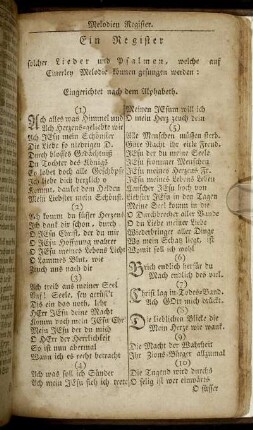 Melodien Register.
Ein Register
solcher Lieder und Psalmen, welche auf
Einerley Melodie können gesungen werden:
Eingerichtet nach dem Alphabeth.
(1)
Ach alles was Himmel und
Ach Herzens-geliebte wir
Ach JEsu mein Schönster
Die Liebe so niedrigen D.
Durch blosses Gedächtniß
Du Tochter des Königs
Ey lobet doch alle Geschöpf
Ich liebe dich herzlich o
Kommt, danket dem Helden
Mein Liebster mein Schönst.
(2)
Ach komm du süsser Herzens
Ach dank dir schon, durch
O JEsu Christ, der du mir
O JEsu Hoffnung wahrer
O JEsu meines Lebens Licht
O Lammes Blut, wie
Zeuch uns nach dir
(3)
Ach treib aus meiner Seel
Auf! Seele, sey gerüst't
Dis ist das noth, lehr
HErr JEsu deine Macht
Komm doch mein JEsu Ehr
Mein JEsu der du mich
O HErr der Herrlichkeit
So ist nun abermal
Wann ich es recht betracht
(4)
Ach was soll ich Sünder
Ach mein JEsu sieh ich trete
Meinen JEsum will ich
O mein Herz
(5)
Alle Menschen müssen sterb.
Gott Rath ihr viele
JEsu der du meine Seele
JEsu frommer Menschen
JEsu meines Herzens Fr.
JEsu meines Lebens Leben
Unser JEsu hoch von
Liebster JEsu in den Tagen
Meine Seel komm in die
O Durchbrecher aller Bande
O du Liebe meiner Liebe
Wiederbringer aller Dinge
Wo mein Schatz liegt, ist
Womit soll ich wohl
(6)
Brich endlich herfür du
Mach endlich des viel.
(7)
Christ lag in Todes-Band.
Ach GOtt mich drückt.
(8)
Die lieblichen Blicke die
Mein Herz wie wank.
(9)
Die Macht der Wahrheit
Ihr Zions-Bürger allzumal
(10)
Die Tugend wird durchs
O selig ist wer einwärts
O süsser